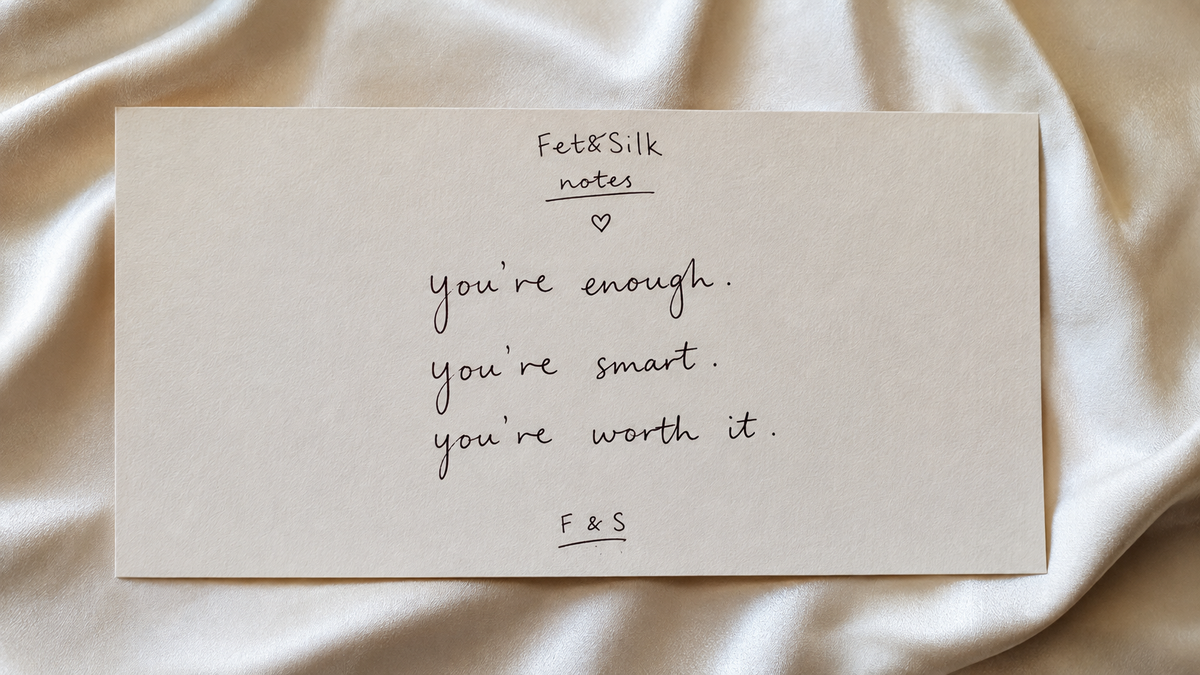 Fet&Silk
notes
♡
you're enough.
you're smart.
you're worth it.
F & S